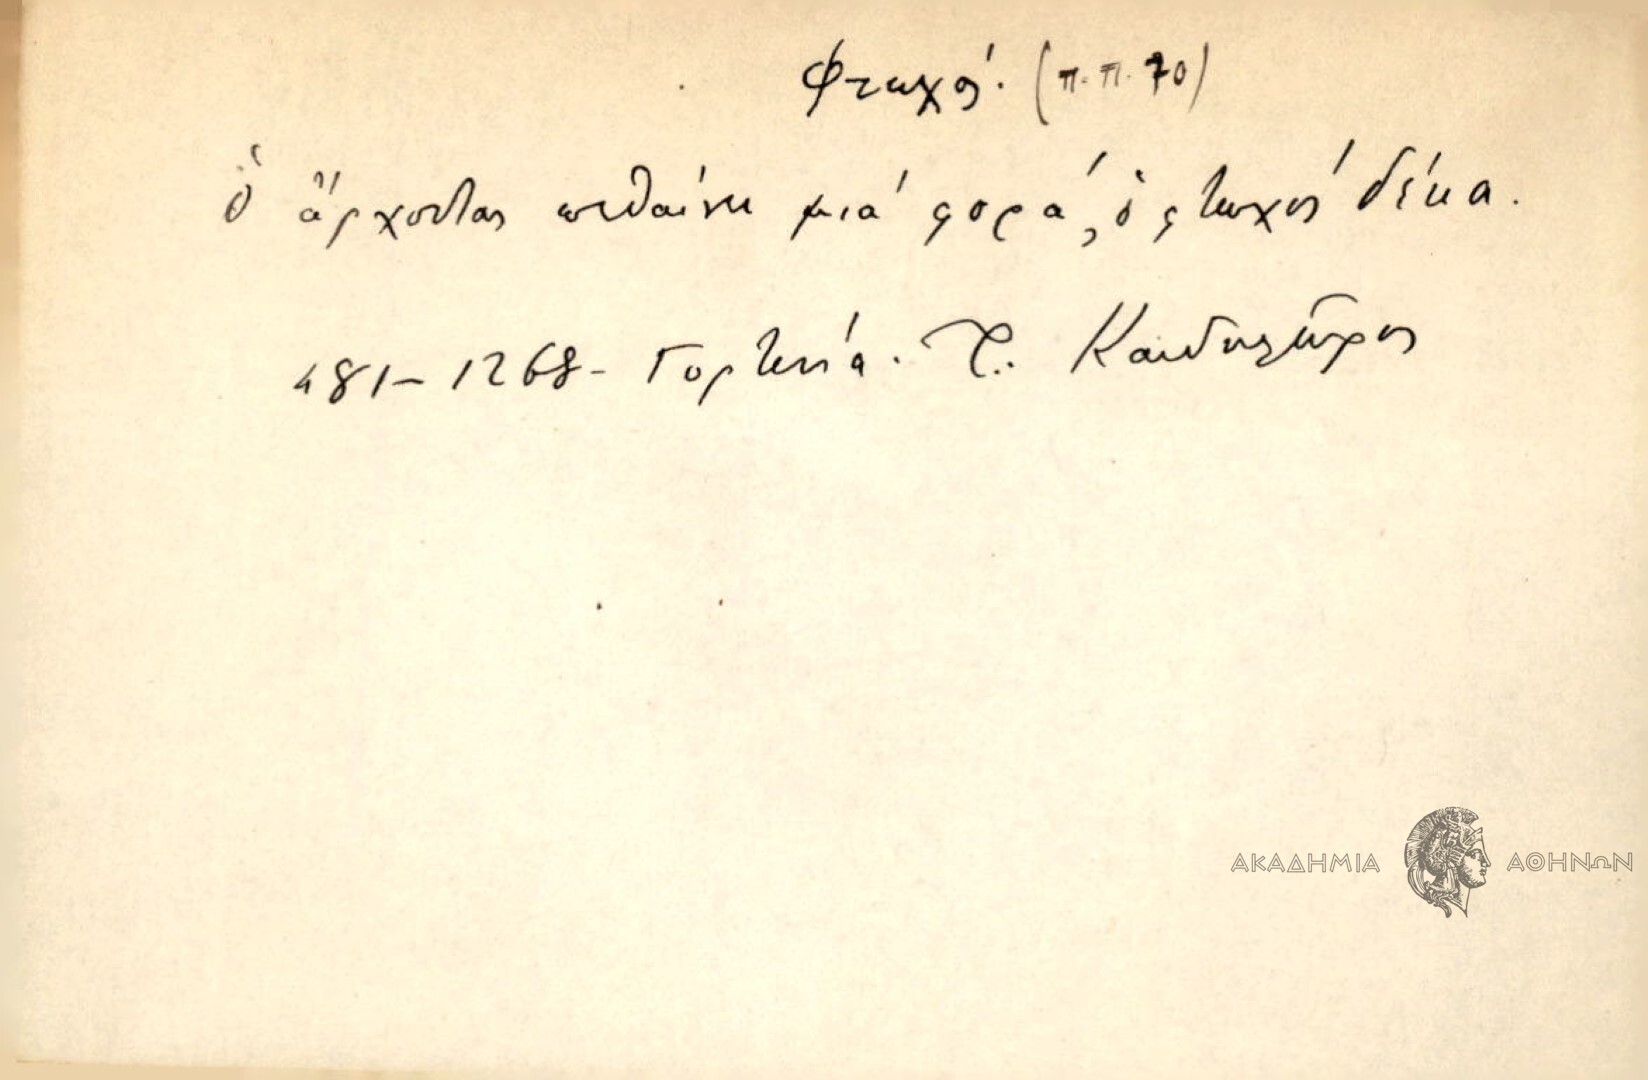 φτωχός. (π.π. 70)
ὁ ἄρχοντας πεθαίνει μιά φορά, ὁ φτωχός δέκα.
481 – 1268 – Γορτυνία. Τ. Κανδηλῶρος
ΑΚΑΔΗΜΙΑ ΑΘΗΝΩΝ